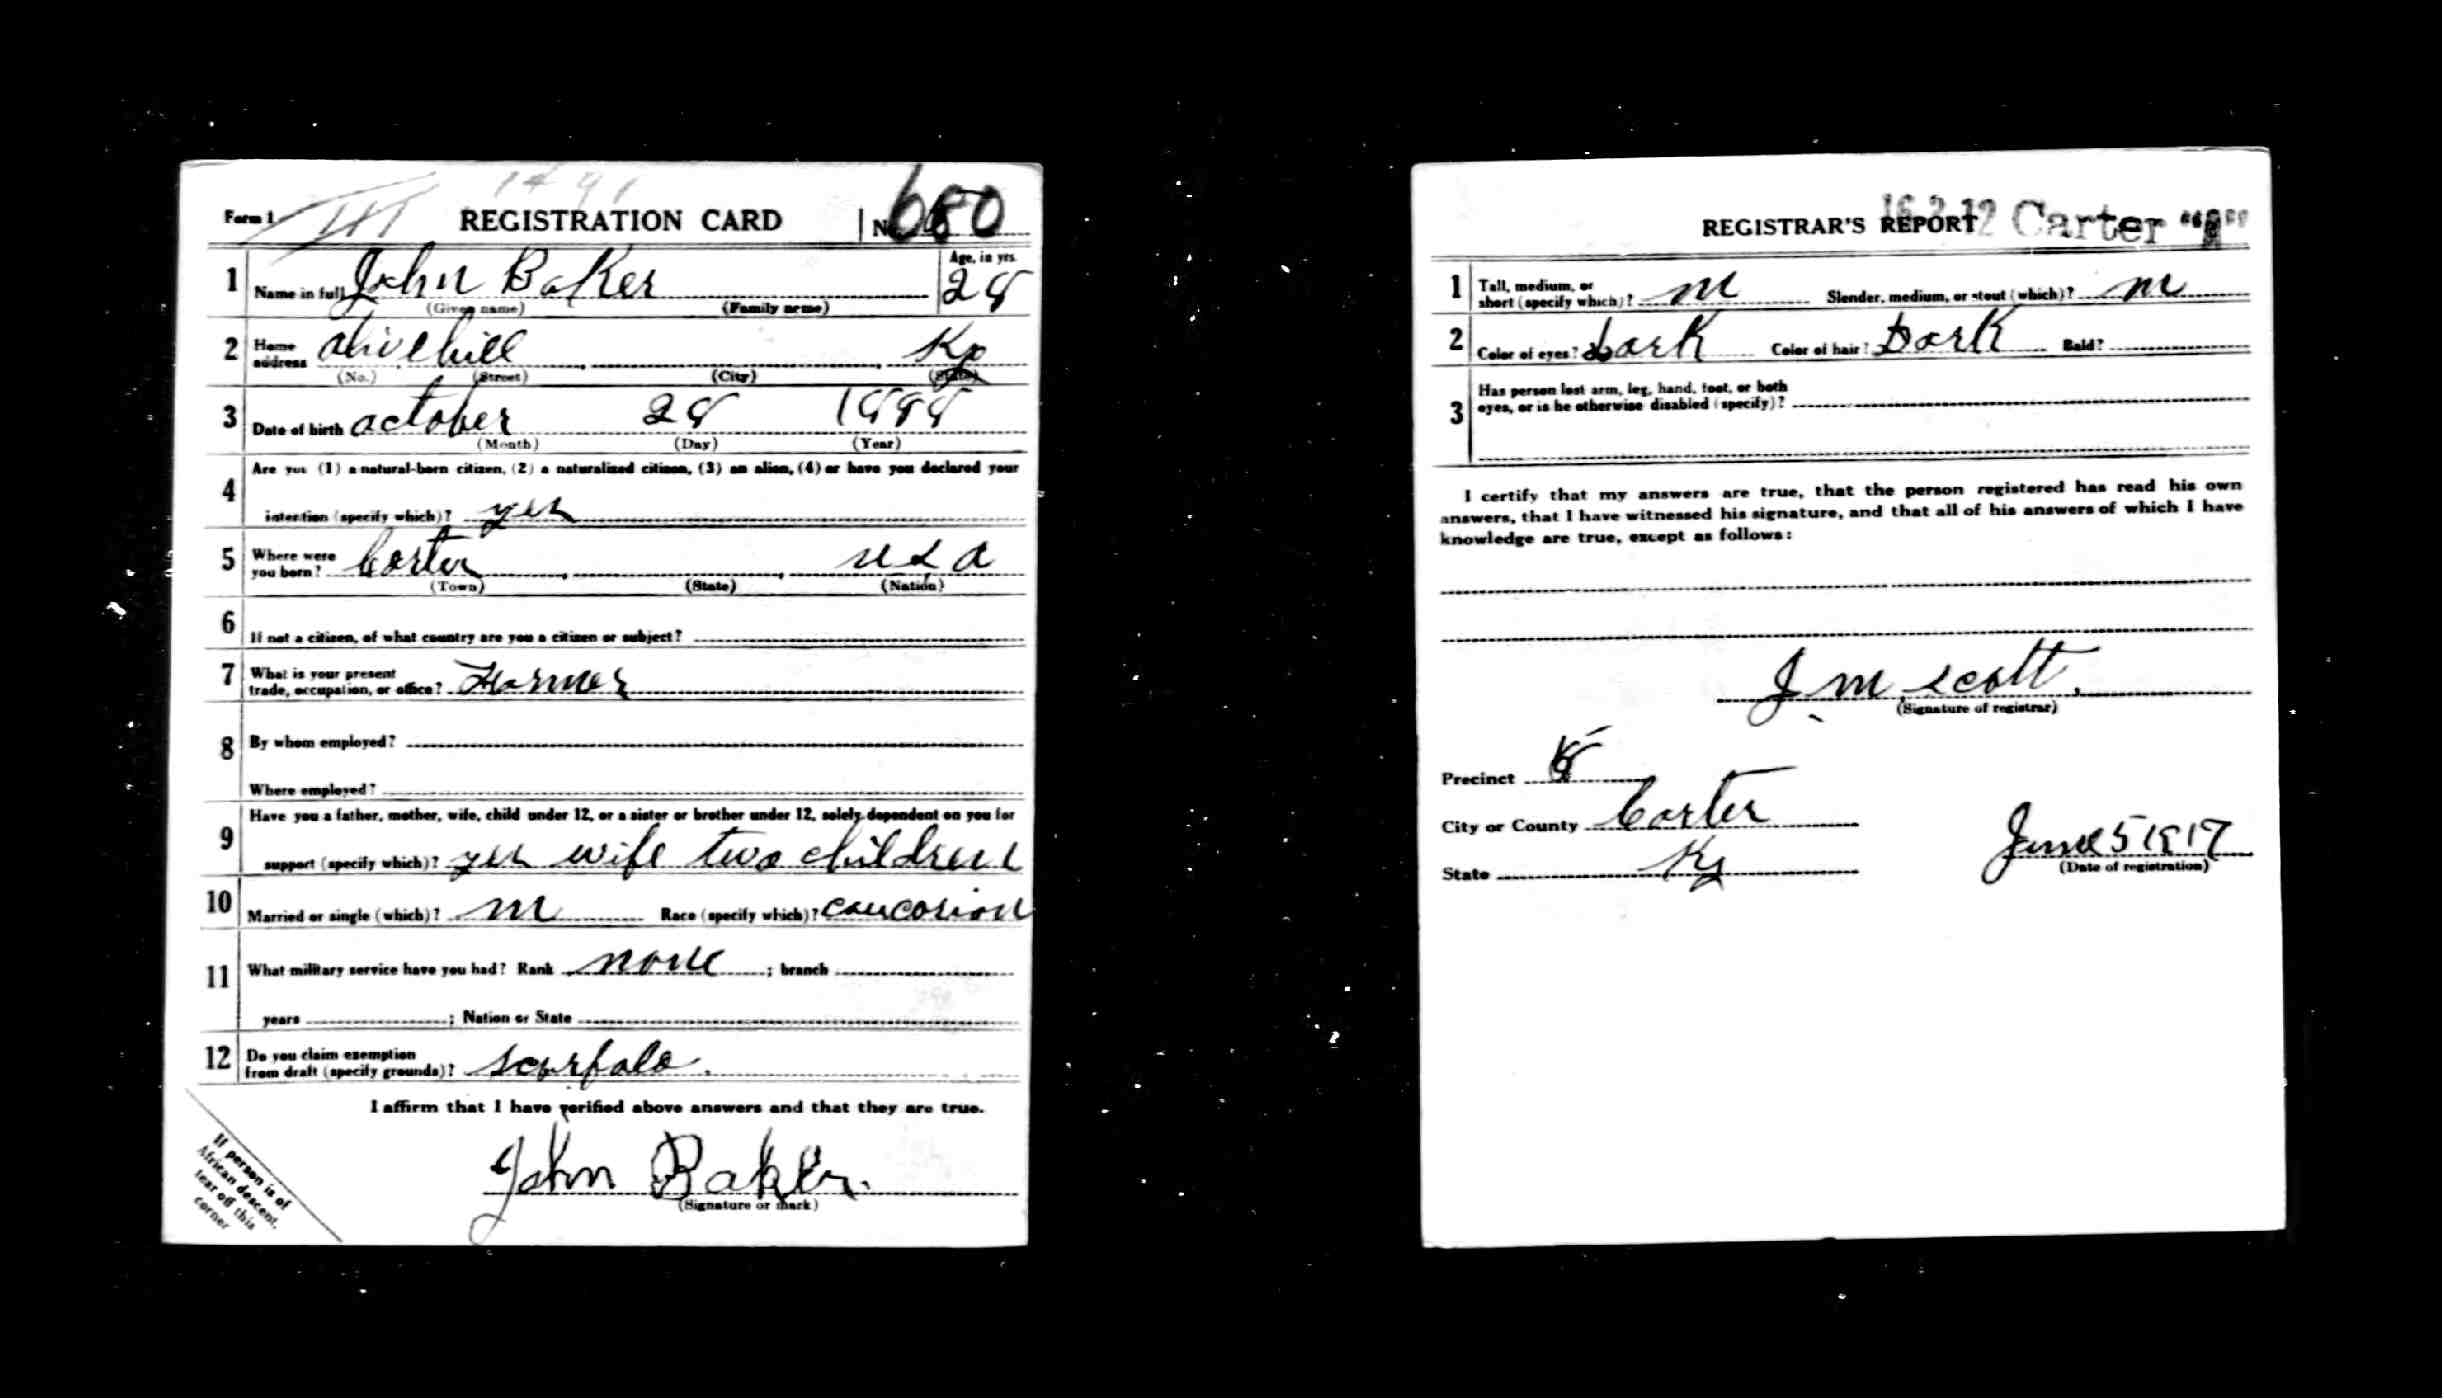 Form 1
REGISTRATION CARD No. 680
1 Name in full John Baker Age, in yrs. 28
(Given name) (Family name)
2 Home address olivehill Ky
(No.) (Street) (City) (State)
3 Date of birth october 28 1888
(Month) (Day) (Year)
4 Are you (1) a natural-born citizen, (2) a naturalized citizen, (3) an alien, (4) or have you declared your
intention (specify which)? yes
5 Where were you born? Carter U S A
(Town) (State) (Nation)
6 If not a citizen, of what country are you a citizen or subject?
7 What is your present trade, occupation, or office? Farmer
8 By whom employed?
Where employed?
9 Have you a father, mother, wife, child under 12, or a sister or brother under 12, solely dependent on you for
support (specify which)? yes wife two children
10 Married or single (which)? m Race (specify which)? caucasion
11 What military service have you had? Rank none ; branch
years ; Nation or State
12 Do you claim exemption from draft (specify grounds)?
I affirm that I have verified above answers and that they are true.
John Baker.
(Signature or mark)
If person is of
African descent,
tear off this
corner
REGISTRAR'S REPORT Carter "A"
1 Tall, medium, or short (specify which)? m Slender, medium, or stout (which)? m
2 Color of eyes? Dark Color of hair? Dark Bald?
3 Has person lost arm, leg, hand, foot, or both
eyes, or is he otherwise disabled (specify)?
I certify that my answers are true, that the person registered has read his own
answers, that I have witnessed his signature, and that all of his answers of which I have
knowledge are true, except as follows:
J M Scott.
(Signature of registrar)
Precinct
City or County Carter
State Ky
June 5 1917
(Date of registration)